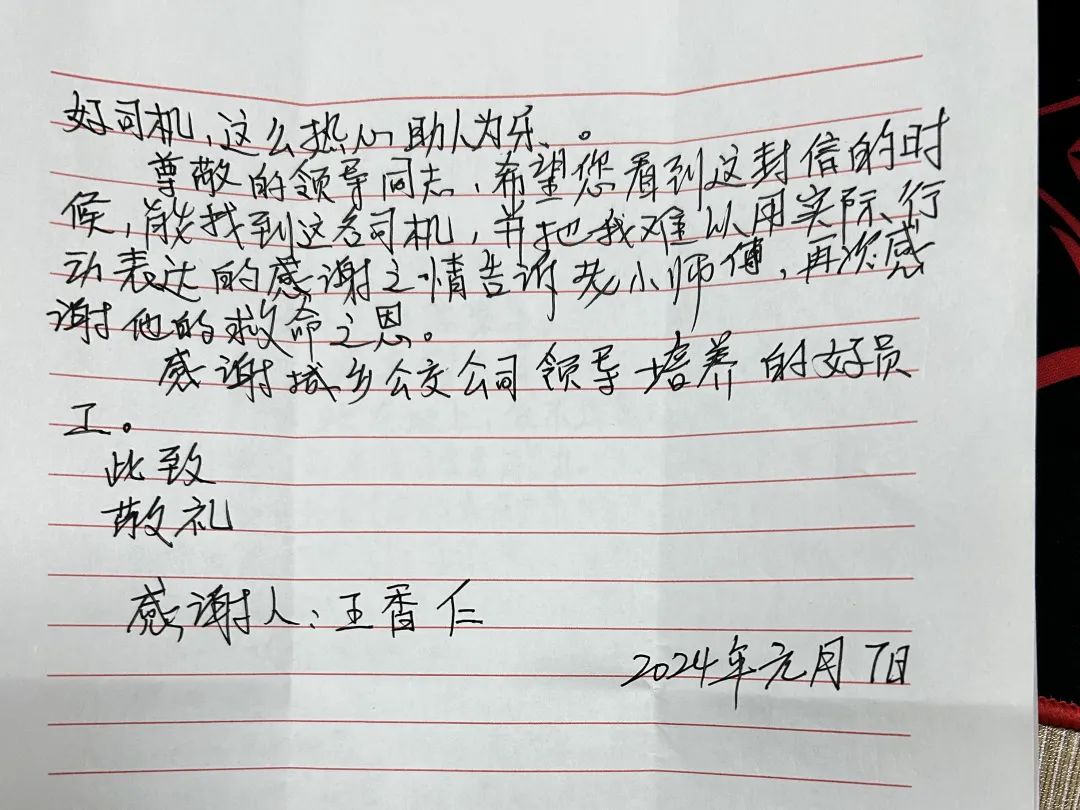 好司机,这么热心助人为乐、。
尊敬的领导同志,希望您看到这封信的时
候,能找到这名司机,并把我难以用实际行
动表达的感谢之情告诉 小师傅,再次感
谢他的救命之恩。
感谢城乡公交公司领导培养的好员
工。
此致
敬礼
感谢人:王香仁
2024年元月7日